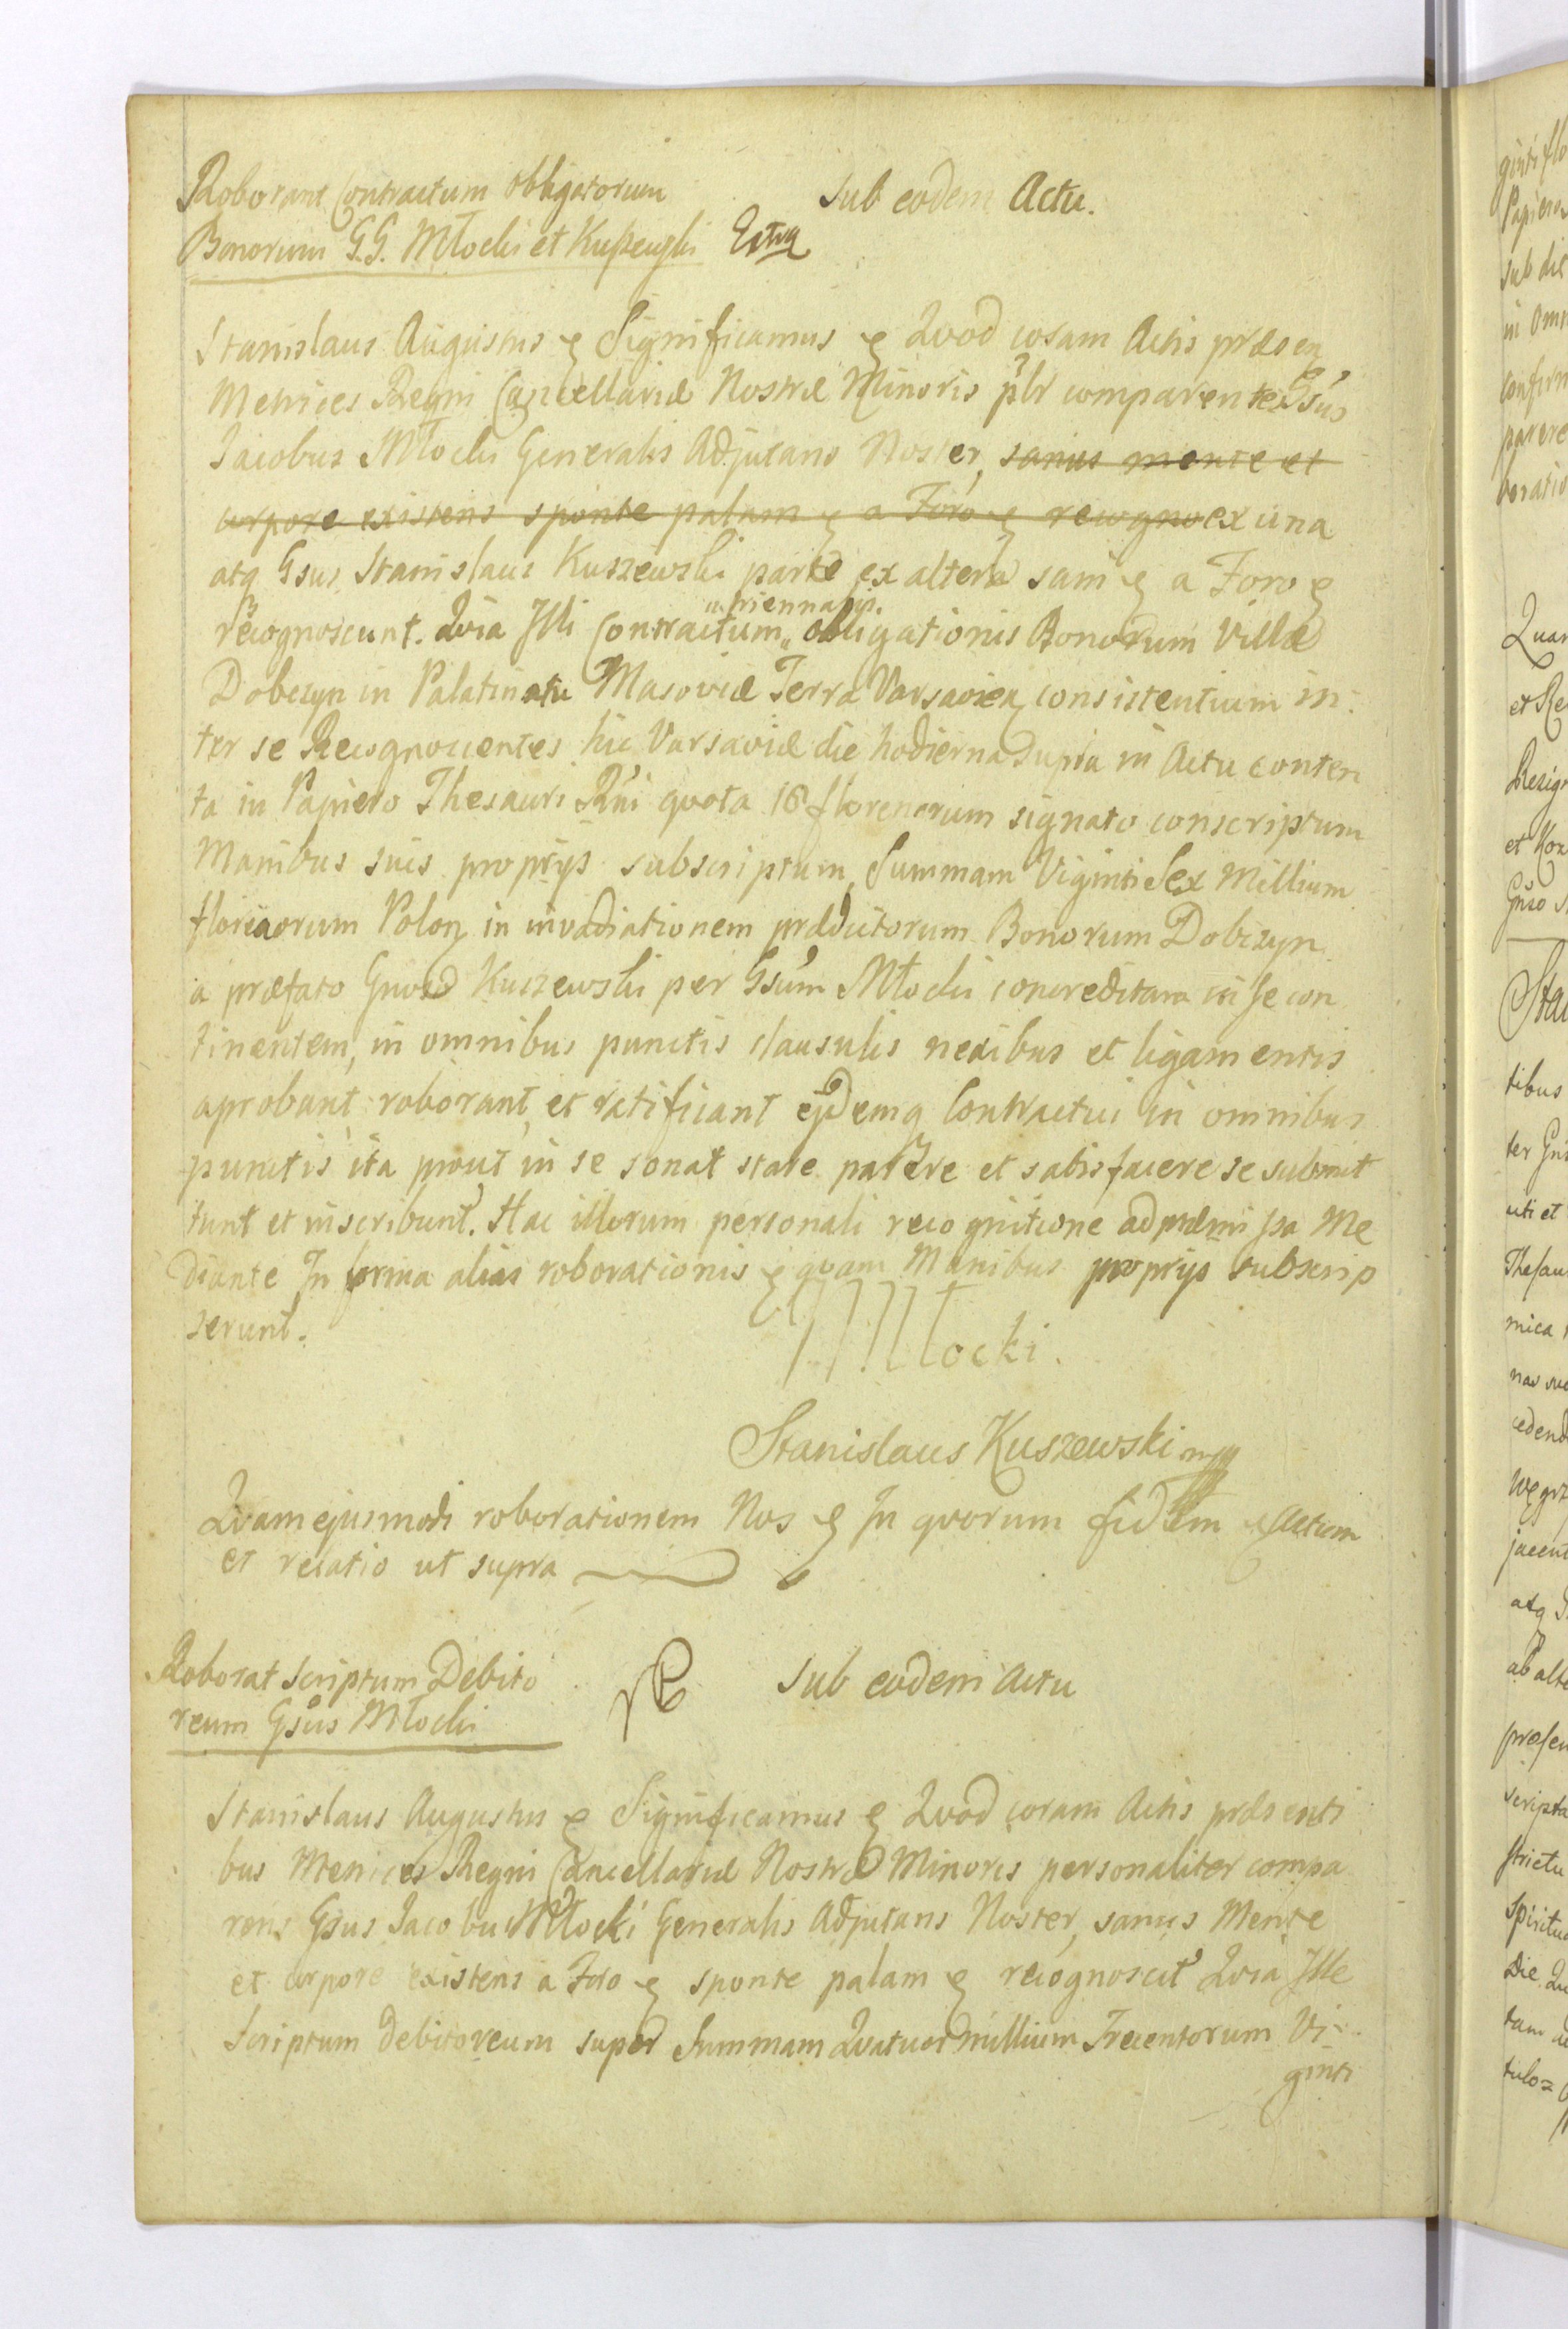 Roborant Contractum obligatorum
Sub eodem Actu.
Bonorum G.G. Młocki et Kuszewski Extra
Stanislaus Augustus & Significamus & Quod coram Actis præsen
Metrices Regni Cancellariæ Nostræ Minoris plr comparentes Gsus
Jacobus Młocki Generalis Adjutans Noster, sanus mente et
corpore existens sponte palam & a Foro & recogno ex una
atq Gsus Stanislaus Kuszewski parte ex altera sani & a Foro &
recognoscunt. Quia Illi Contractum triennalis obligationis Bonorum Villæ
Dobczyn in Palatinatu Masoviæ Terra Varsavien consistentium in-
ter se Recognoscentes hic Varsaviæ die hodierna supra in Actu conten
ta in Papiero Thesauri Rni quota 16 florenorum signato conscriptum
Manibus suis proprijs subscriptum, Summam Viginti Sex Millium
florenorum Polon in invadiationem prædictorum Bonorum Dobczyn
a præfato Gnoso Kuszewski per Gsum Młocki concreditam in se con
tinentem, in omnibus punctis clausulis nexibus et ligamentis
aprobant, roborant, et ratificant ejdemq Contractui in omnibus
punctis ita prout in se sonat stare parere et satisfacere se submit
tunt et inscribunt. Hac illorum personali recognitione ad præmissa Me
diante In forma alias roborationis & quam Manibus proprijs subscrip
serunt.
Młocki.
Stanislaus Kuszewski mpp
Quam ejusmodi roborationem Nos & In quorum fidem & Actum
et relatio ut supra
Roborat Scriptum Debito
Sub eodem Actu
reum Gsus Młocki
Stanislaus Augustus & Significamus & Quod coram Actis præsenti
bus Metrices Regni Cancellariæ Nostræ Minoris personaliter compa
rens Gsus Jacobus Młocki Generalis Adjutans Noster, sanus Mente
et corpore existens a Foro & sponte palam & recognoscit Quia Ille
Scriptum debitoreum super Summam Quatuor millium Trecentorum Vi-
ginti